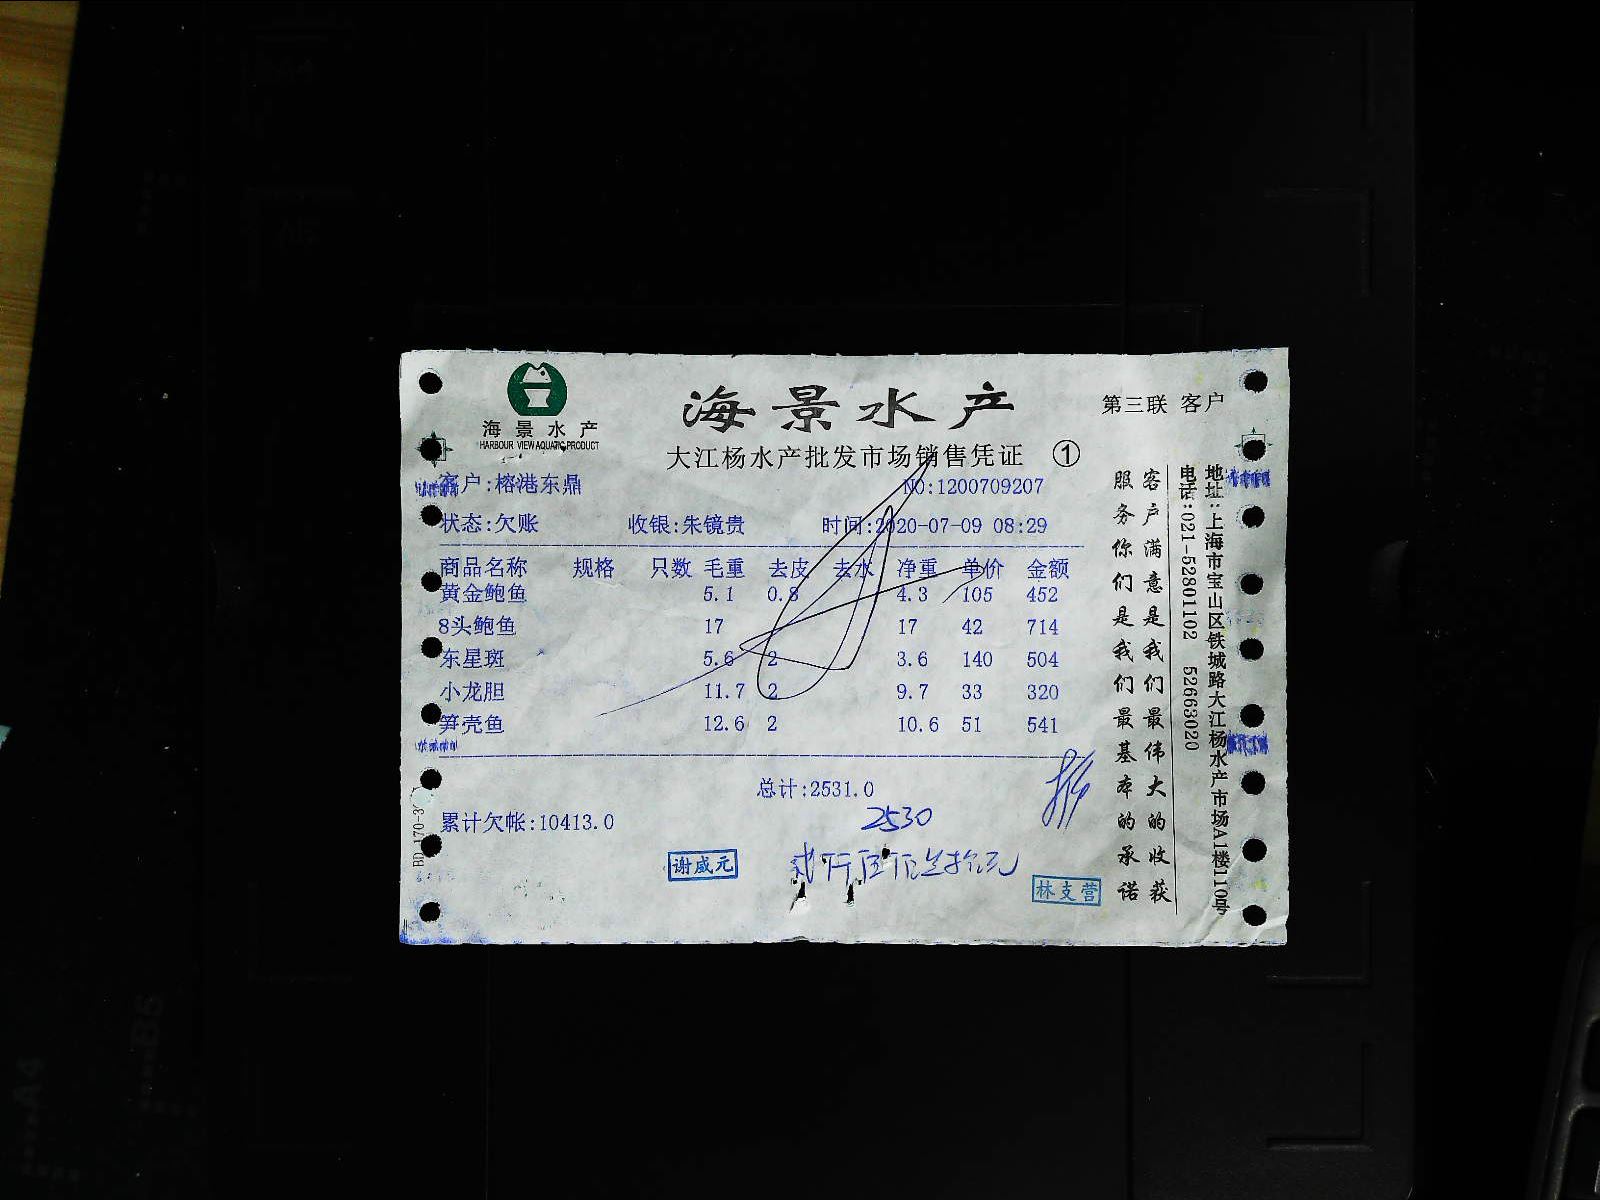 海景水产
HARBOUR VIEW AQUATIC PRODUCT
海景水产
第三联 客户
大江杨水产批发市场销售凭证 ①
客户:榕港东鼎 NO:1200709207
状态:欠账 收银:朱镜贵 时间:2020-07-09 08:29
商品名称 规格 只数 毛重 去皮 去水 净重 单价 金额
黄金鲍鱼 5.1 0.8 4.3 105 452
8头鲍鱼 17 17 42 714
东星斑 5.6 2 3.6 140 504
小龙胆 11.7 2 9.7 33 320
笋壳鱼 12.6 2 10.6 51 541
总计:2531.0
累计欠帐:10413.0
2530
贰仟伍佰叁拾元
谢威元
林支营
客户满意是我们最伟大的收获
服务你们是我们最基本的承诺
地址:上海市宝山区铁城路大江杨水产市场A1楼110号
电话:021-52801102 52663020